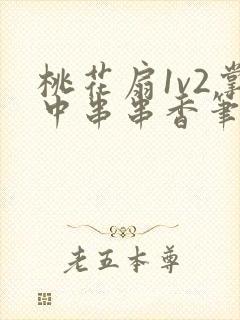 桃花扇1v2掌
中串串香笔
老五本尊